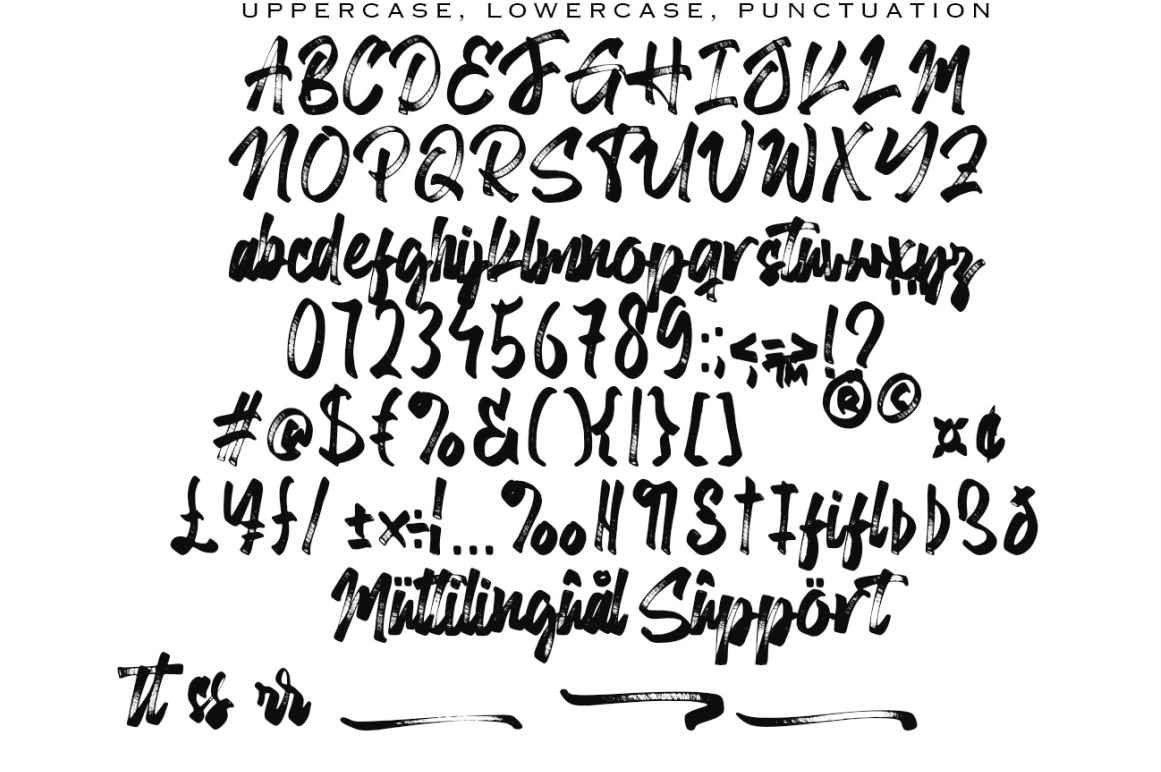 UPPERCASE, LOWERCASE, PUNCTUATION
ABCDEFGHIJKLM
NOPQRSTUVWXYZ
abcdefghijklmnopqrstuvwxyz
0123456789:;<=>!?
,™®©
#@$€%&(){|}[]¤¢
£¥ƒ/±×÷¦…‰¶§†‡fiflþÞßð
Müttilingûål Sûppört
tt ss rr